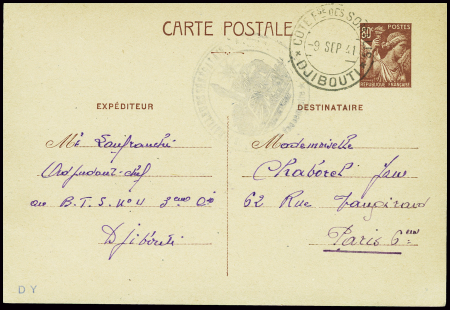 CARTE POSTALE
CÔTE FSE DES SO
-9 SEP 41
DJIBOUTI
80
POSTES
RÉPUBLIQUE FRANÇAISE
EXPÉDITEUR
Mr Lanfranchi
Adjudant-chef
au B.T.S. no 4 3eme Cie
Djibouti
DESTINATAIRE
Mademoiselle
Chaboret
62 Rue Vaugirard
Paris 6em
DY